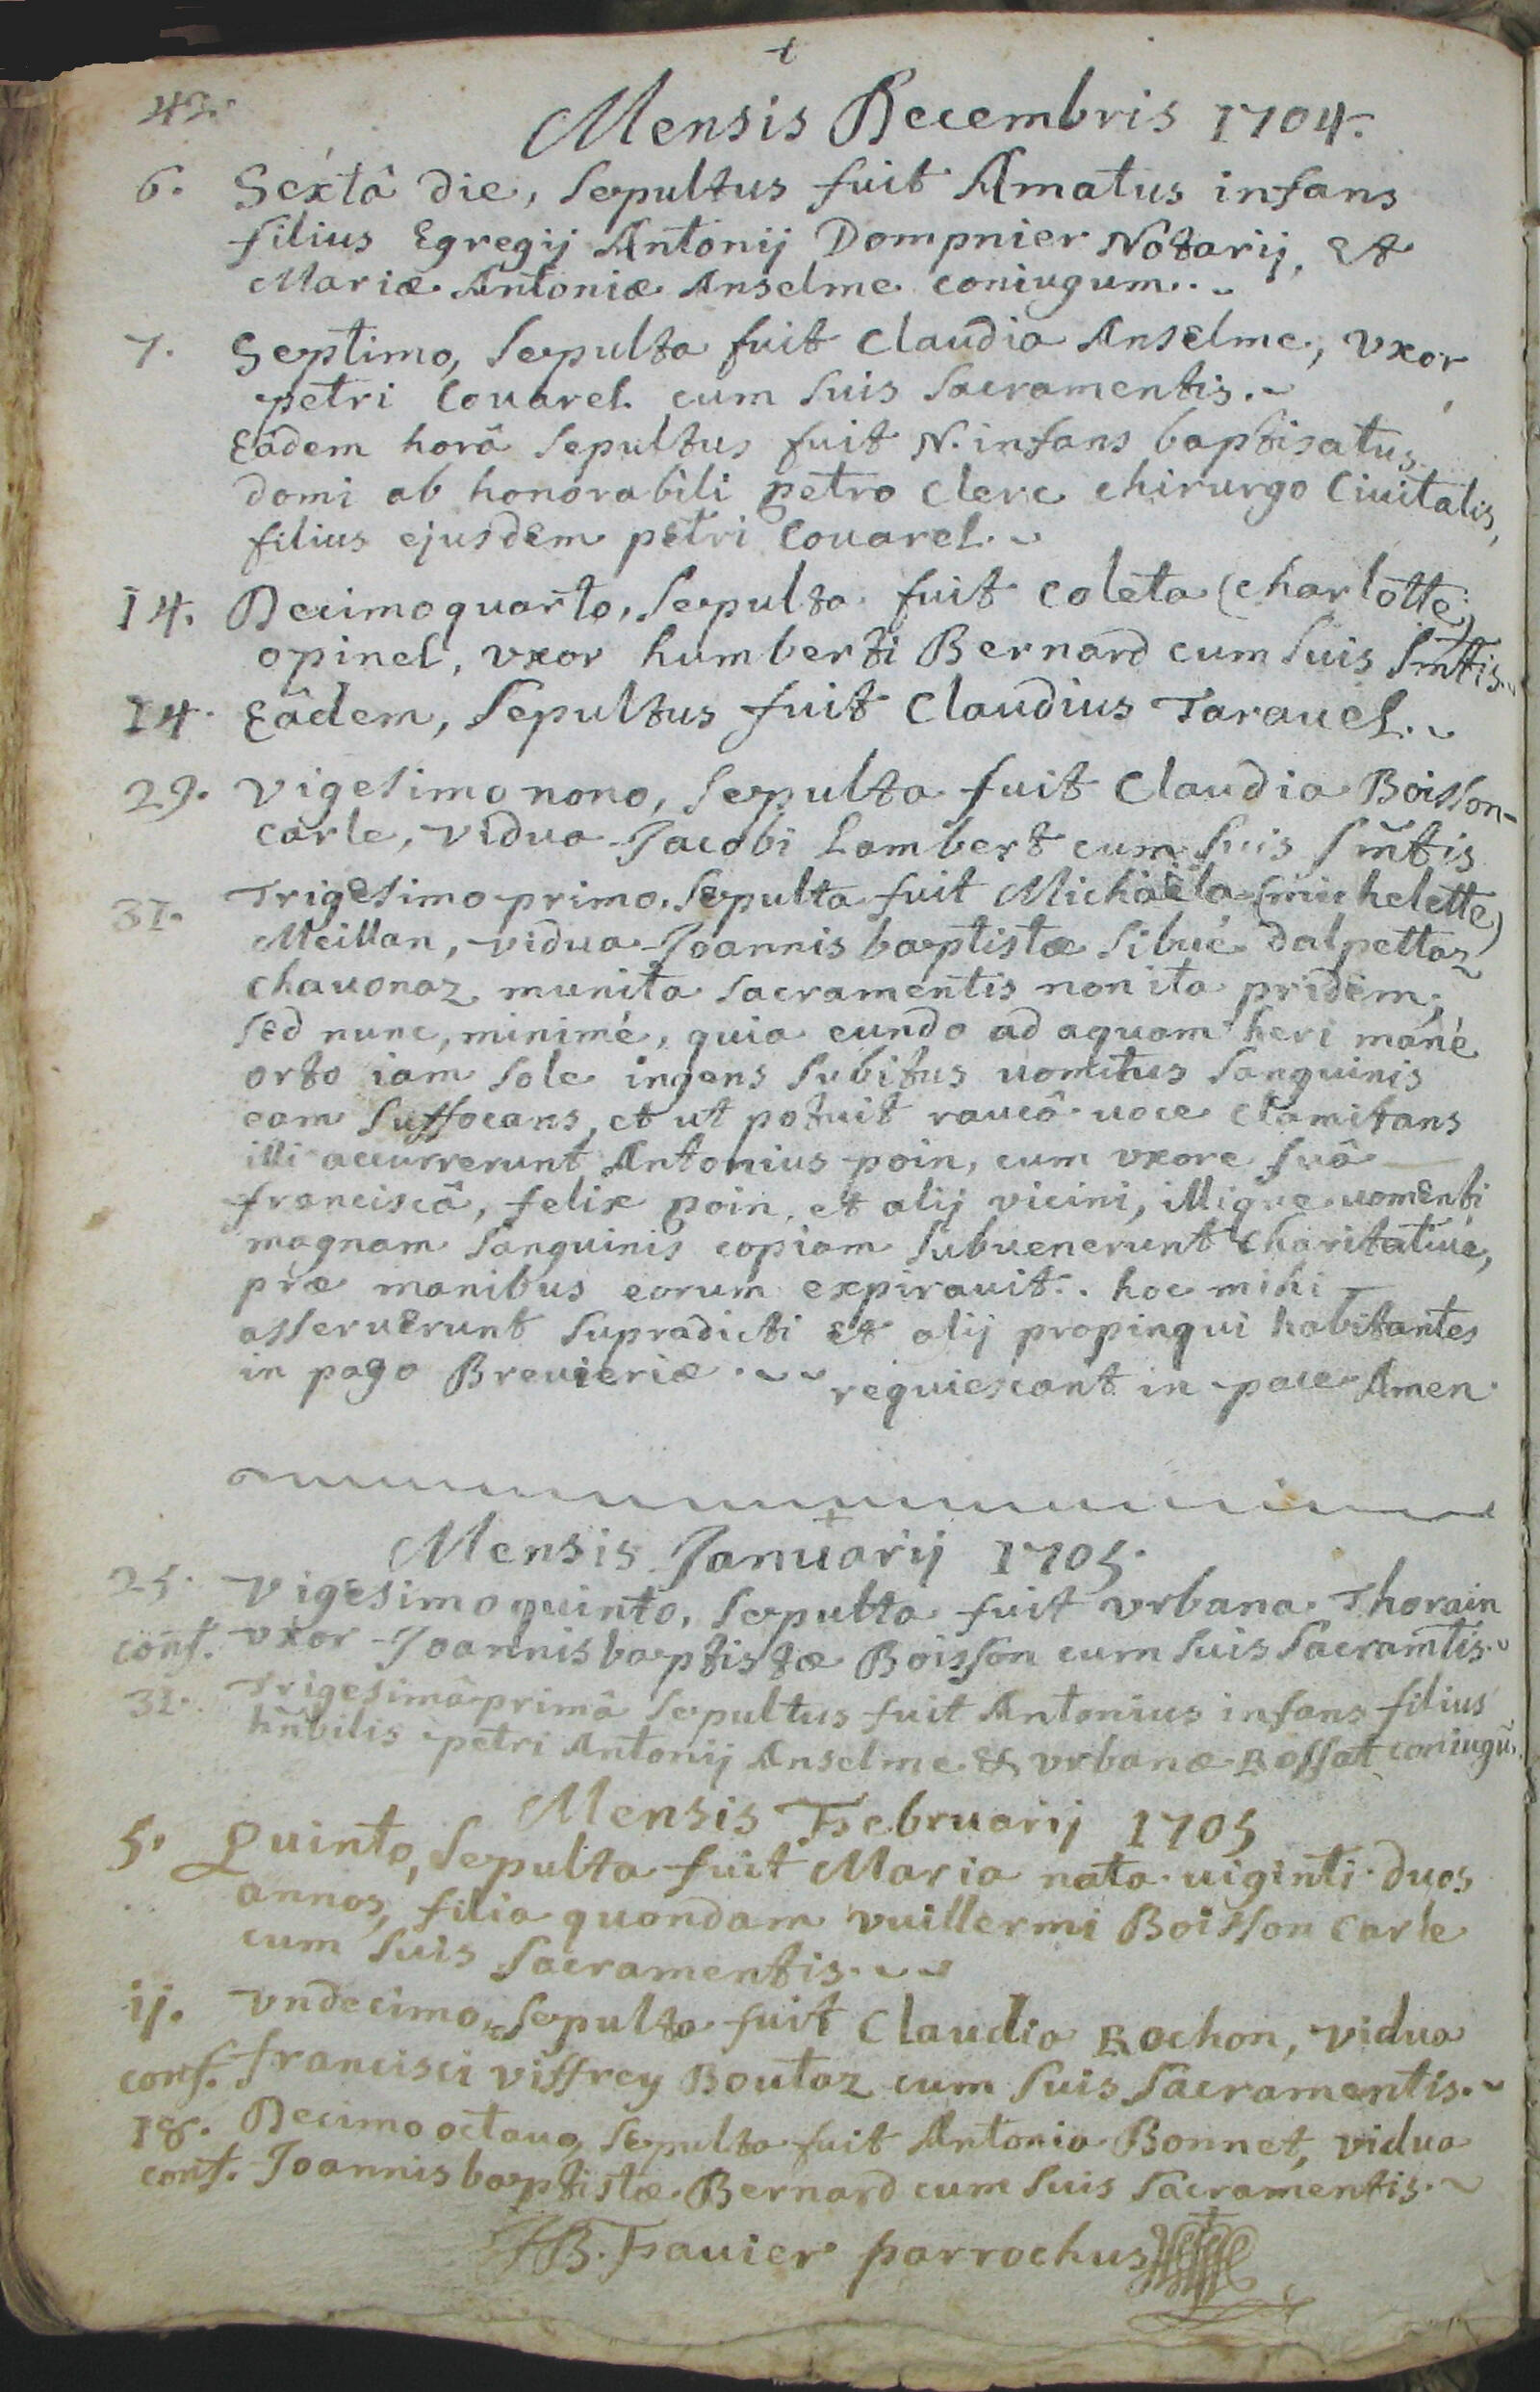 42.
Mensis Decembris 1704.
6. Sextâ die, sepultus fuit Amatus infans
filius Egregij Antonij Dompnier Notarij, Et
Mariæ Antoniæ Anselme coniugum.
7. Septimo, sepulta fuit Claudia Anselme, vxor
petri Couarel cum suis sacramentis.
Eâdem horâ sepultus fuit N. infans baptisatus
domi ab honorabili petro Clerc chirurgo Ciuitatis,
filius ejusdem petri Couarel.
14. Decimoquarto, sepulta fuit Coleta (charlotte)
opinel, vxor humberti Bernard cum suis smtis.
14. Eâdem, sepultus fuit Claudius Tarauel.
29. Vigesimo nono, sepulta fuit Claudia Boisson-
carle, vidua Jacobi Lambert cum suis smtis
31. Trigesimo primo, sepulta fuit Michaëla (michelette)
Meillan, vidua Joannis baptistæ sibué dalpettaz
chauonaz munita sacramentis non ita pridem,
sed nunc, minimé, quia eundo ad aquam heri mané
orto iam sole ingens subitus uomitus sanguinis
eam suffocans, et ut potuit raucâ uoce clamitans
illi accurrerunt Antonius poin, cum vxore suâ
franciscâ, felix poin, et alij vicini, illique uomenti
magnam sanguinis copiam subuenerunt charitatiué,
præ manibus eorum expirauit. hoc mihi
asseruerunt supradicti et alij propinqui habitantes
in pago Breuieriæ. requiescant in pace Amen.
Mensis Januarij 1705.
25. Vigesimo quinto, sepulta fuit vrbana Thorain
conf. vxor Joannisbaptistæ Boisson cum suis sacramtis.
31. Trigesimâ primâ sepultus fuit Antonius infans filius
hñbilis petri Antonij Anselme & vrbanæ Rossat coniugũ.
Mensis Februarij 1705
5. Quinto, sepulta fuit Maria nata uiginti duos
annos, filia quondam vuillermi Boisson Carle
cum suis sacramentis.
ij. vndecimo, sepulta fuit Claudia Rochon, vidua
conf. francisci viffrey Boutaz cum suis sacramentis.
18. Decimo octauo, sepulta fuit Antonia Bonnet, vidua
conf. Joannisbaptistæ Bernard cum suis sacramentis.
JB. Fauier parrochus